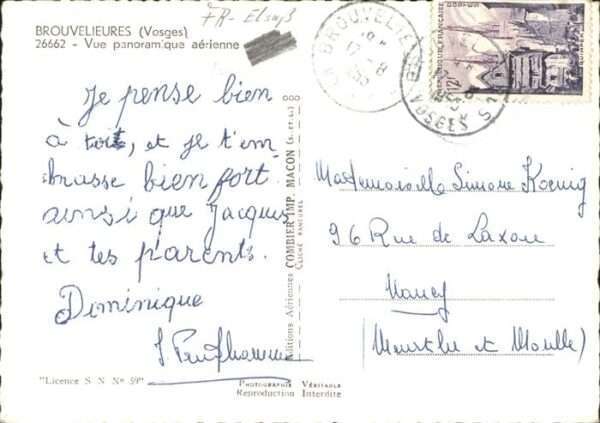 BROUVELIEURES (Vosges)
26662 - Vue panoramique aérienne
FR-Elsaß
Je pense bien
à toi, et je t'em
brasse bien fort
ainsi que Jacques
et tes parents.
Dominique
"Licence S N N° 59"
Editions Aériennes COMBIER IMP. MACON (S.-et-L.)
CLICHÉ
Photographie Véritable
Reproduction Interdite
BROUVELIE
VOSGES
REPUBLIQUE FRANCAISE
12F
QUIMPER
Mademoiselle Simone Koenig
96 Rue de Laxou
Nancy
(Meurthe et Moselle)